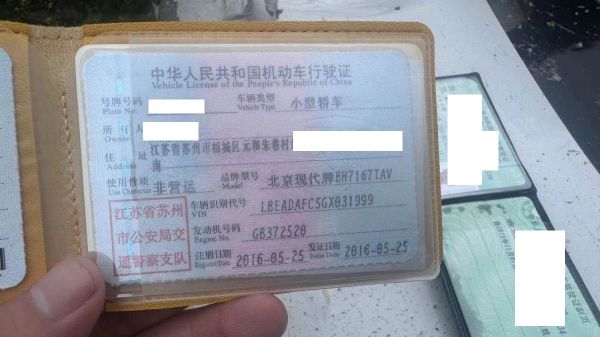 中华人民共和国机动车行驶证
Vehicle License of the People's Republic of China
号牌号码 车辆类型 小型轿车
Plate No. Vehicle Type
所有人
Owner
住址 江苏省苏州市相城区元和朱巷村
Address 南
使用性质 非营运 品牌型号 北京现代牌BH7167TAV
Use Character Model
江苏省苏州 车辆识别代号 LBEADAFC5GX031999
VIN
市公安局交 发动机号码 GB372520
Engine No.
通警察支队 注册日期 2016-05-25 发证日期 2016-05-25
Register Date Issue Date